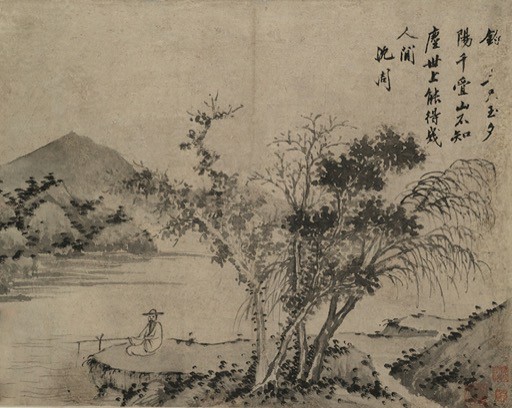 釣玉夕
陽千疊山不知
塵世上能得幾
人閒
沈周